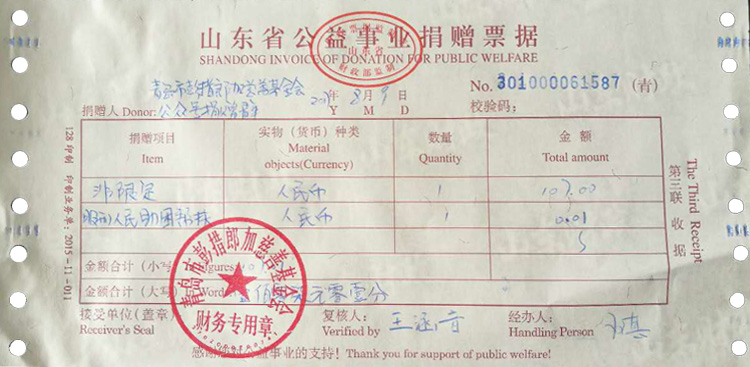 山东省公益事业捐赠票据
SHANDONG INVOICE OF DONATION FOR PUBLIC WELFARE
山东省
财政部监制
青岛市彭措郎加慈善基金会
8月9日
No. 301000061587 (青)
捐赠人 Donor:
公众号
Y M D
校验码:
捐赠项目 实物 (货币) 种类 数量 金额
Item Material objects(Currency) Quantity Total amount
非限定 人民币 1
人民币 1 0.01
金额合计 (小写) Figures
金额合计 (大写) In Words 元零壹分
接受单位 (盖章) 复核人: 王 经办人:
Receiver's Seal Verified by Handling Person
感谢 公益事业的支持! Thank you for support of public welfare!
青岛市彭措郎加慈善基金会
财务专用章
128印制 印制业务单: 2015-11-011
The Third Receipt
第三联 收据